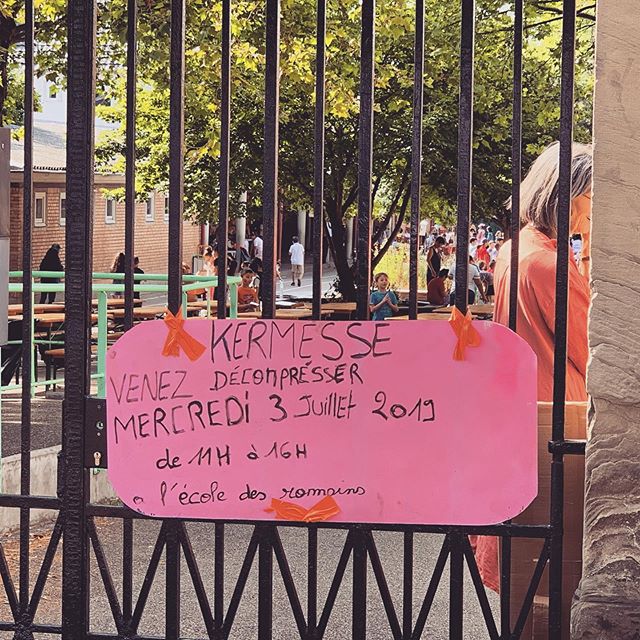 KERMESSE
VENEZ DÉCOMPRÉSSER
MERCREDI 3 Juillet 2019
de 11H à 16H
à l'école des romains